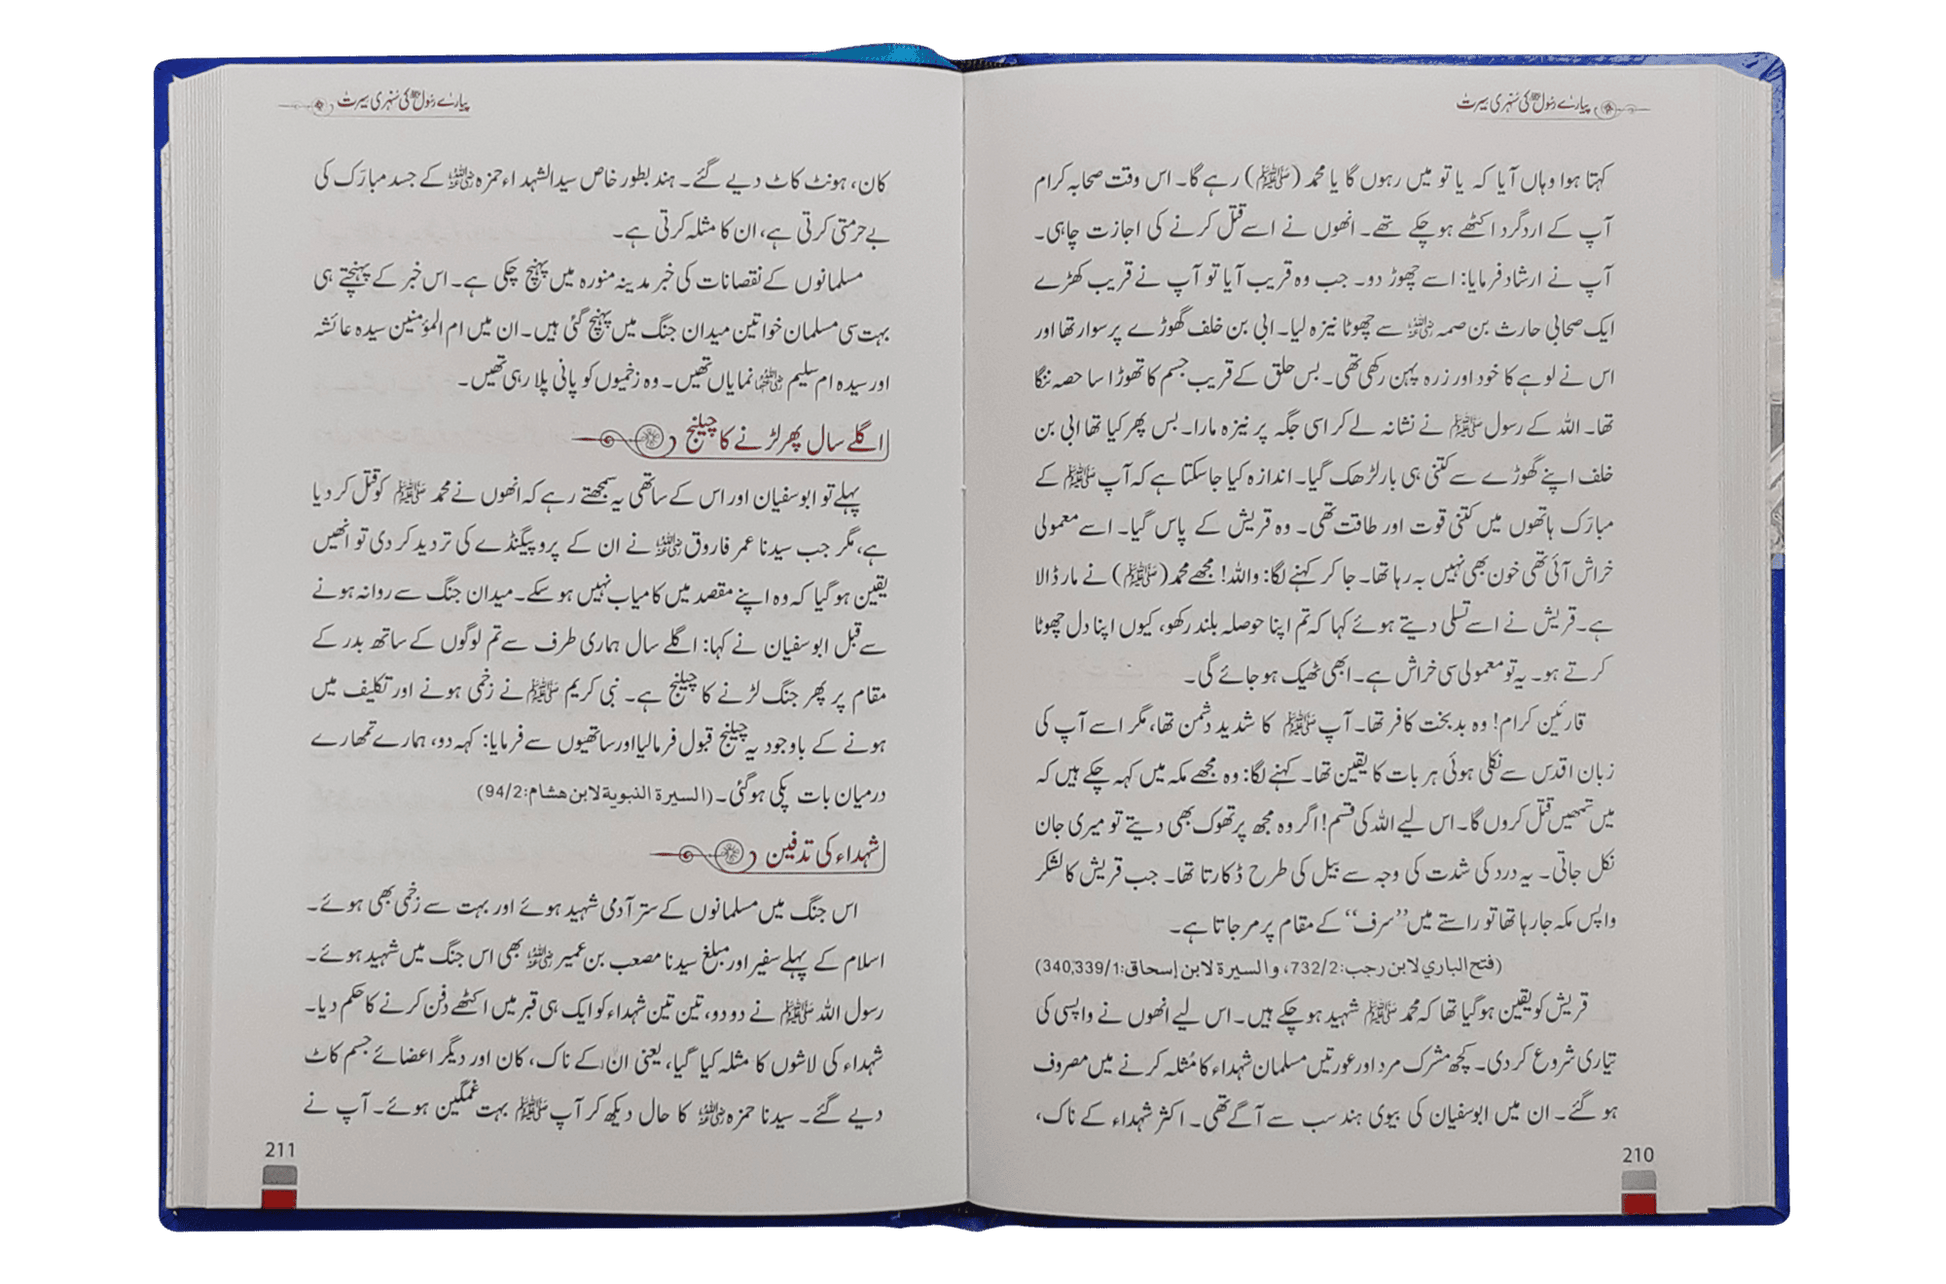 پیارے رسول ﷺ کی سنہری سیرت
کہتا ہوا وہاں آیا کہ یا تو میں رہوں گا یا محمد (ﷺ) رہے گا۔ اس وقت صحابہ کرام
آپ کے اردگرد اکٹھے ہو چکے تھے۔ انھوں نے اسے قتل کرنے کی اجازت چاہی۔
آپ نے ارشاد فرمایا: اسے چھوڑ دو۔ جب وہ قریب آیا تو آپ نے قریب کھڑے
ایک صحابی حارث بن صمہ رضی اللہ عنہ سے چھوٹا نیزہ لیا۔ ابی بن خلف گھوڑے پر سوار تھا اور
اس نے لوہے کا خود اور زرہ پہن رکھی تھی۔ بس حلق کے قریب جسم کا تھوڑا سا حصہ ننگا
تھا۔ اللہ کے رسول ﷺ نے نشانہ لے کر اسی جگہ پر نیزہ مارا۔ بس پھر کیا تھا ابی بن
خلف اپنے گھوڑے سے کتنی ہی بار لڑھک گیا۔ اندازہ کیا جاسکتا ہے کہ آپ ﷺ کے
مبارک ہاتھوں میں کتنی قوت اور طاقت تھی۔ وہ قریش کے پاس گیا۔ اسے معمولی
خراش آئی تھی خون بھی نہیں بہ رہا تھا۔ جا کر کہنے لگا: واللہ! مجھے محمد (ﷺ) نے مار ڈالا
ہے۔ قریش نے اسے تسلی دیتے ہوئے کہا کہ تم اپنا حوصلہ بلند رکھو، کیوں اپنا دل چھوٹا
کرتے ہو۔ یہ تو معمولی سی خراش ہے۔ ابھی ٹھیک ہو جائے گی۔
قارئین کرام! وہ بدبخت کافر تھا۔ آپ ﷺ کا شدید دشمن تھا، مگر اسے آپ کی
زبان اقدس سے نکلی ہوئی ہر بات کا یقین تھا۔ کہنے لگا: وہ مجھے مکہ میں کہہ چکے ہیں کہ
میں تمھیں قتل کروں گا۔ اس لیے اللہ کی قسم! اگر وہ مجھ پر تھوک بھی دیتے تو میری جان
نکل جاتی۔ یہ درد کی شدت کی وجہ سے بیل کی طرح ڈکارتا تھا۔ جب قریش کا لشکر
واپس مکہ جا رہا تھا تو راستے میں ’’سرف‘‘ کے مقام پر مر جاتا ہے۔
(فتح الباري لابن رجب:732/2، والسيرة لابن إسحاق:340,339/1)
قریش کو یقین ہو گیا تھا کہ محمد ﷺ شہید ہو چکے ہیں۔ اس لیے انھوں نے واپسی کی
تیاری شروع کر دی۔ کچھ مشرک مرد اور عورتیں مسلمان شہداء کا مُثلہ کرنے میں مصروف
ہو گئے۔ ان میں ابوسفیان کی بیوی ہند سب سے آگے تھی۔ اکثر شہداء کے ناک،
210
پیارے رسول ﷺ کی سنہری سیرت
کان، ہونٹ کاٹ دیے گئے۔ ہند بطور خاص سید الشہداء حمزہ رضی اللہ عنہ کے جسد مبارک کی
بے حرمتی کرتی ہے، ان کا مثلہ کرتی ہے۔
مسلمانوں کے نقصانات کی خبر مدینہ منورہ میں پہنچ چکی ہے۔ اس خبر کے پہنچتے ہی
بہت سی مسلمان خواتین میدان جنگ میں پہنچ گئی ہیں۔ ان میں ام المؤمنین سیدہ عائشہ
اور سیدہ ام سلیم رضی اللہ عنہما نمایاں تھیں۔ وہ زخمیوں کو پانی پلا رہی تھیں۔
اگلے سال پھر لڑنے کا چیلنج
پہلے تو ابوسفیان اور اس کے ساتھی یہ سمجھتے رہے کہ انھوں نے محمد ﷺ کو قتل کر دیا
ہے، مگر جب سیدنا عمر فاروق رضی اللہ عنہ نے ان کے پروپیگنڈے کی تردید کر دی تو انھیں
یقین ہو گیا کہ وہ اپنے مقصد میں کامیاب نہیں ہو سکے۔ میدان جنگ سے روانہ ہونے
سے قبل ابوسفیان نے کہا: اگلے سال ہماری طرف سے تم لوگوں کے ساتھ بدر کے
مقام پر پھر جنگ لڑنے کا چیلنج ہے۔ نبی کریم ﷺ نے زخمی ہونے اور تکلیف میں
ہونے کے باوجود یہ چیلنج قبول فرما لیا اور ساتھیوں سے فرمایا: کہہ دو، ہمارے تمھارے
درمیان بات پکی ہو گئی۔ (السيرة النبوية لابن هشام:94/2)
شہداء کی تدفین
اس جنگ میں مسلمانوں کے ستر آدمی شہید ہوئے اور بہت سے زخمی بھی ہوئے۔
اسلام کے پہلے سفیر اور مبلغ سیدنا مصعب بن عمیر رضی اللہ عنہ بھی اس جنگ میں شہید ہوئے۔
رسول اللہ ﷺ نے دو دو، تین تین شہداء کو ایک ہی قبر میں اکٹھے دفن کرنے کا حکم دیا۔
شہداء کی لاشوں کا مثلہ کیا گیا، یعنی ان کے ناک، کان اور دیگر اعضائے جسم کاٹ
دیے گئے۔ سیدنا حمزہ رضی اللہ عنہ کا حال دیکھ کر آپ ﷺ بہت غمگین ہوئے۔ آپ نے
211